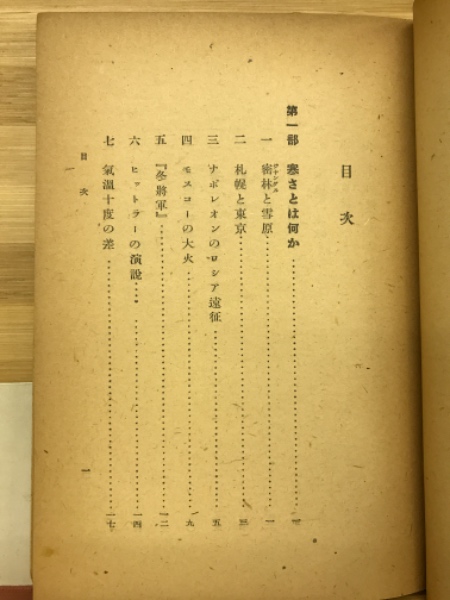 目次
第一部 寒さとは何か……
一 密林と雪原……一
二 札幌と東京……三
三 ナポレオンのロシア遠征……五
四 モスコーの大火……九
五 『冬將軍』……一二
六 ヒットラーの演說……一四
七 氣溫十度の差……一七
目次
一